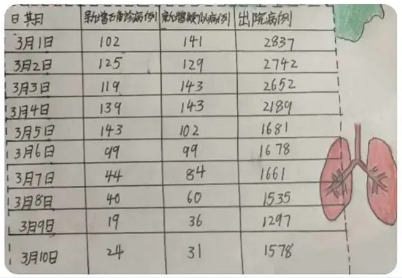 日期 新增确诊病例 新增疑似病例 出院病例
3月1日 102 141 2837
3月2日 125 129 2742
3月3日 119 143 2652
3月4日 139 143 2189
3月5日 143 102 1681
3月6日 99 99 1678
3月7日 44 84 1661
3月8日 40 60 1535
3月9日 19 36 1297
3月10日 24 31 1578